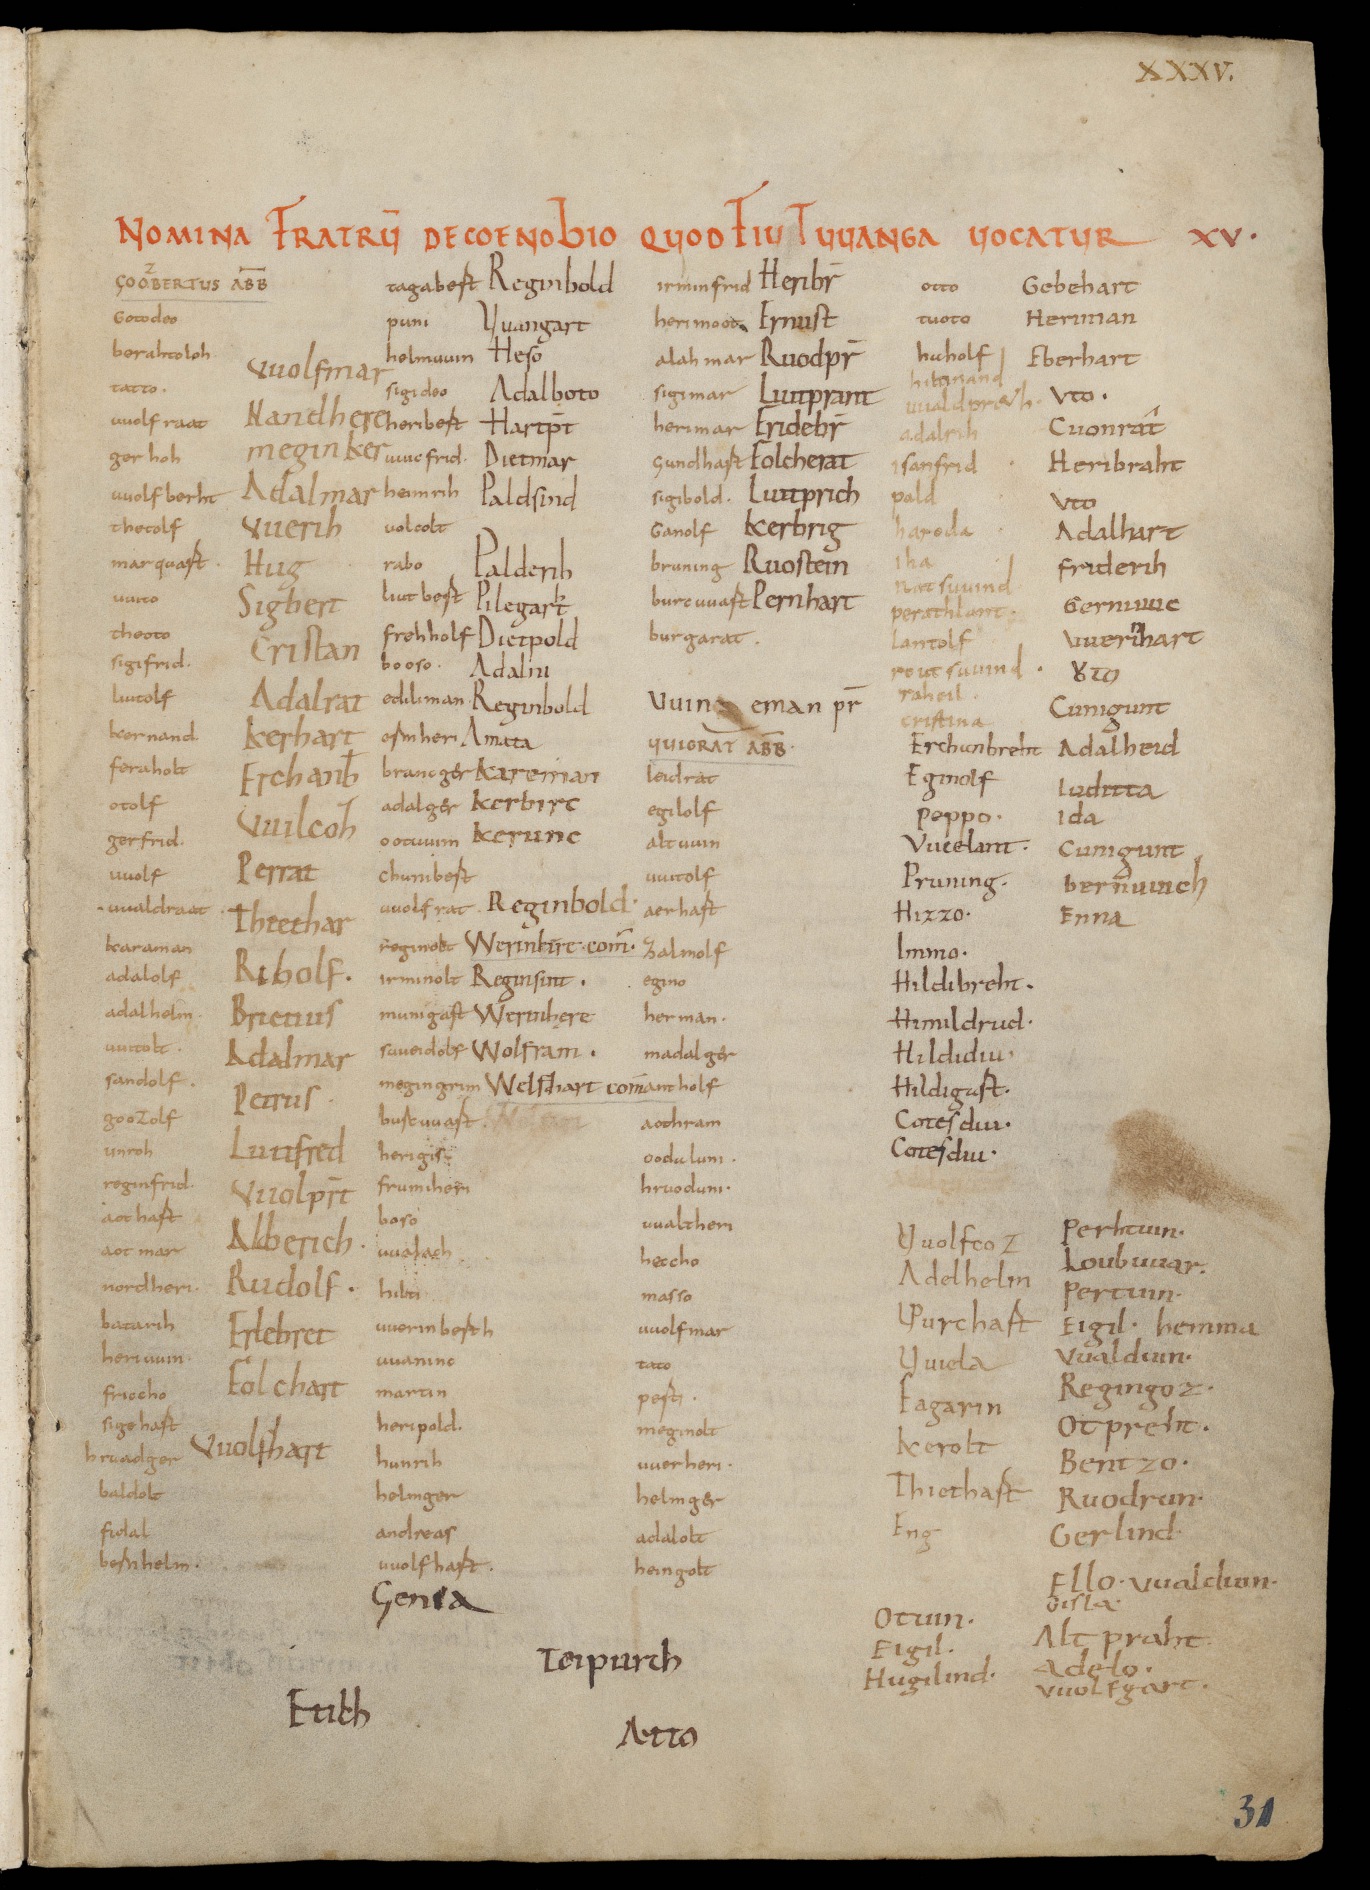 XXXV.
NOMINA FRATRŪ DE COENOBIO QUOD FIUTUUANGA UOCATUR XV.
GOZBERTUS ABB
Gotadeo
berahtoloh
tatto.
uuolfraat
gerhoh
uuolfberht
theotolf
marquast
uuito
theoto
sigifrid.
liutolf
kernand
feraholt
otolf
gerfrid.
uuolf
uualdraat
karaman
adalolf
adalhelm.
uuitolt.
sandolf.
goozolf
unroh
reginfrid.
aothaft
aotmar
nordheri.
batarih
heriuuin.
friccho
sigehaft
hruadger
baldolt
fidal
bernhelm.
Vuolfmar
Nandhere
meginker
Adalmar
Vuerih
Hug
Sigbert
Cristan
Adalrat
Kerhart
Erchanb
Vuilcoh
Perrat
Thiethar
Riholf.
Brictius
Adalmar
Petrus.
Liutfred
Vuolpr̄t
Alberich.
Rudolf.
Erlebret
Folchart
Vuolfhart
tagabert
puni
helmuuin
sigideo
heribert
uuicfrid.
heimrih
uolcolt
rabo
liutbert
frehholf
booso.
ediliman
osmheri
brancger
adalger
ootuuin
chunibert
uuolfrat.
reginolt
irminolt
munigast
sueidolf
megingrim
buttuuast.
herigis
frumiheri
boso
uualach.
hilti
uuerinberth
uuaninc
martin
heripold.
hunrih
helmger
andreas
uuolfhaft.
Genza
Reginbold
Vuangart
Heso
Adalboto
Hartp̄t
Dietmar
Paldsind
Palderih
Pilegart
Dietpold
Adalni
Reginbold
Amata
Kareman
Kerbirc
Kerunc
Reginbold.
Werinhere. com̄.
Reginsint.
Werinhere
Wolfram.
Welfhart com̄
irminfrid
herimoot
alahmar
sigimar
herimar
gundhaft
sigibold.
Ganolf
bruning
burcuuast
burgarat.
Heribr̄
Ernust
Ruodpr̄
Liutprant
Eridebr̄
Folcherat
Liutprich
Kerbrig
Ruostein
Pernhart
Vuine eman pr̄
UUIORAT ABB
leidrat
egilolf
altuuin
uuitolf
aerhaft
Zalmolf
egino
herman.
madalger
antholf
aothram
oodulum.
hruodum.
uualtheri
heccho
masso
uuolfmar
tato
pesti.
meginolt
uuerheri.
helmger
adalolt
heingolt
otto
tuoto
huholf
hiltinand
adalrih
isanfrid
pald
haroda
iha
natsuuind
perathlant.
lantolf
routsuuind.
raheil.
cristina
Erchunbreht
Eginolf
Peppo.
Vucelant.
Pruning.
Hizzo.
Immo.
Hildibreht.
Himildrud.
Hildidiu.
Hildigast.
Cotesdiu.
Cotesdiu.
Vuolfcoz
Adelhelm
Purchaft
Vuiela
Fagarin
Kerolt
Thiethaft
Eng
Otuin.
Eigil.
Hugilind.
Gebehart
Heriman
Eberhart
Vto.
Cuonrat
Heribraht
Vto
Adalhart
Friderih
Gernuuic
Vuerinhart
Vto
Cunigunt
Adalheid
Iuditta
Ida
Cunigunt
bernuuich
Enna
Perhtuin.
Loubuuar.
Pertuin.
Eigil. hemma
Vualduin.
Regingoz.
Otpreht.
Bentzo.
Ruodrun.
Gerlind.
Ello. Vualduon.
Gisla.
Altpraht.
Adelo.
Vuolfgart.
Teipurch
Etich
Atto
31